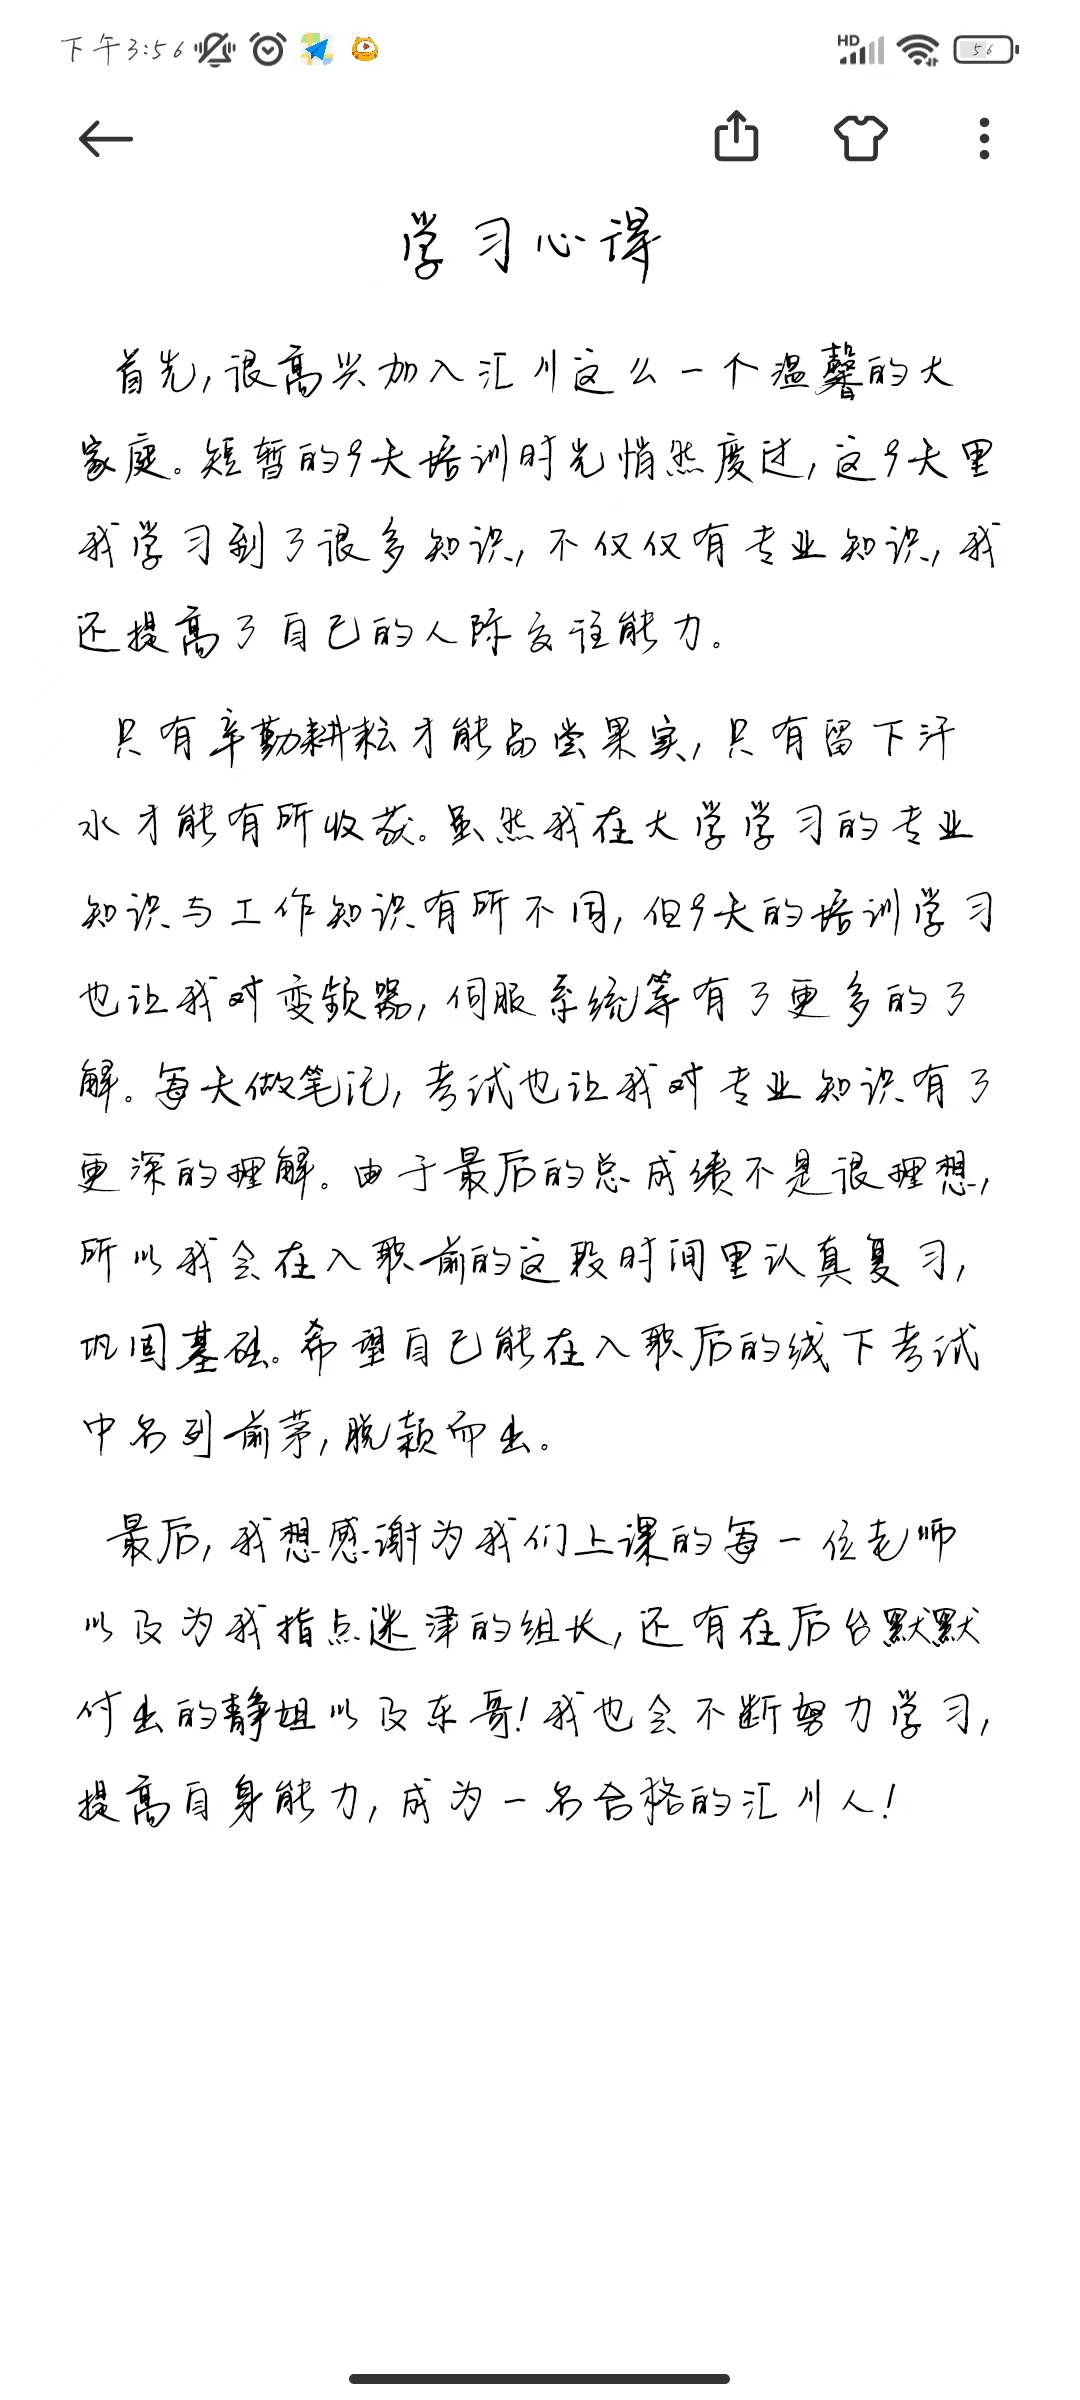 下午3:56
HD
56
学习心得
首先,很高兴加入汇川这么一个温馨的大
家庭。短暂的9天培训时光悄然度过,这9天里
我学习到了很多知识,不仅仅有专业知识,我
还提高了自己的人际交往能力。
只有辛勤耕耘才能品尝果实,只有留下汗
水才能有所收获。虽然我在大学学习的专业
知识与工作知识有所不同,但9天的培训学习
也让我对变频器,伺服系统等有了更多的了
解。每天做笔记,考试也让我对专业知识有了
更深的理解。由于最后的总成绩不是很理想,
所以我会在入职前的这段时间里认真复习,
巩固基础。希望自己能在入职后的线下考试
中名列前茅,脱颖而出。
最后,我想感谢为我们上课的每一位老师
以及为我指点迷津的组长,还有在后台默默
付出的静姐以及东哥!我也会不断努力学习,
提高自身能力,成为一名合格的汇川人!